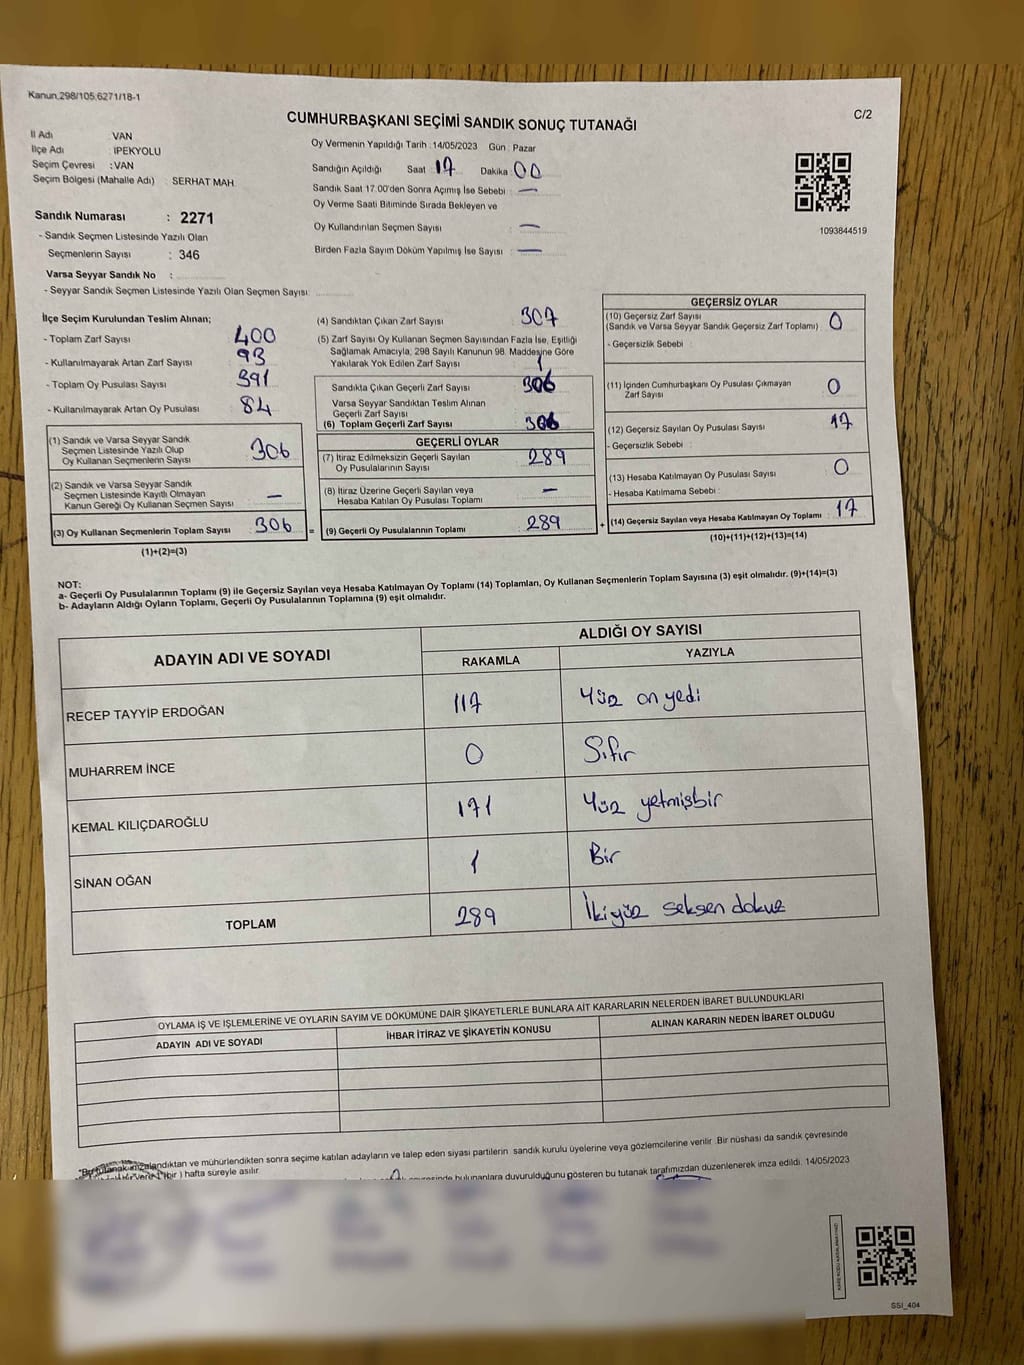 Kanun.298/105,6271/18-1
C/2
CUMHURBAŞKANI SEÇİMİ SANDIK SONUÇ TUTANAĞI
İl Adı : VAN
İlçe Adı : İPEKYOLU
Seçim Çevresi : VAN
Seçim Bölgesi (Mahalle Adı) : SERHAT MAH.
Oy Vermenin Yapıldığı Tarih : 14/05/2023 Gün : Pazar
Sandığın Açıldığı Saat : 17 Dakika : 00
Sandık Saat 17:00'den Sonra Açımış İse Sebebi : —
Oy Verme Saati Bitiminde Sırada Bekleyen ve
Oy Kullandırılan Seçmen Sayısı : —
Birden Fazla Sayım Döküm Yapılmış İse Sayısı : —
1093844519
Sandık Numarası : 2271
- Sandık Seçmen Listesinde Yazılı Olan
Seçmenlerin Sayısı : 346
Varsa Seyyar Sandık No :
- Seyyar Sandık Seçmen Listesinde Yazılı Olan Seçmen Sayısı:
İlçe Seçim Kurulundan Teslim Alınan;
- Toplam Zarf Sayısı : 400
- Kullanılmayarak Artan Zarf Sayısı : 93
- Toplam Oy Pusulası Sayısı : 391
- Kullanılmayarak Artan Oy Pusulası : 84
(1) Sandık ve Varsa Seyyar Sandık
Seçmen Listesinde Yazılı Olup
Oy Kullanan Seçmenlerin Sayısı : 306
(2) Sandık ve Varsa Seyyar Sandık
Seçmen Listesinde Kayıtlı Olmayan
Kanun Gereği Oy Kullanan Seçmen Sayısı : —
(3) Oy Kullanan Seçmenlerin Toplam Sayısı : 306
(1)+(2)=(3)
(4) Sandıktan Çıkan Zarf Sayısı : 307
(5) Zarf Sayısı Oy Kullanan Seçmen Sayısından Fazla İse, Eşitliği
Sağlamak Amacıyla, 298 Sayılı Kanunun 98. Maddesine Göre
Yakılarak Yok Edilen Zarf Sayısı : 1
Sandıkta Çıkan Geçerli Zarf Sayısı : 306
Varsa Seyyar Sandıktan Teslim Alınan
Geçerli Zarf Sayısı :
(6) Toplam Geçerli Zarf Sayısı : 306
GEÇERLİ OYLAR
(7) İtiraz Edilmeksizin Geçerli Sayılan
Oy Pusulalarının Sayısı : 289
(8) İtiraz Üzerine Geçerli Sayılan veya
Hesaba Katılan Oy Pusulası Toplamı : —
= (9) Geçerli Oy Pusulalarının Toplamı : 289
GEÇERSİZ OYLAR
(10) Geçersiz Zarf Sayısı
(Sandık ve Varsa Seyyar Sandık Geçersiz Zarf Toplamı) : 0
- Geçersizlik Sebebi :
(11) İçinden Cumhurbaşkanı Oy Pusulası Çıkmayan
Zarf Sayısı : 0
(12) Geçersiz Sayılan Oy Pusulası Sayısı : 17
- Geçersizlik Sebebi :
(13) Hesaba Katılmayan Oy Pusulası Sayısı : 0
- Hesaba Katılmama Sebebi :
+ (14) Geçersiz Sayılan veya Hesaba Katılmayan Oy Toplamı : 17
(10)+(11)+(12)+(13)=(14)
NOT:
a- Geçerli Oy Pusulalarının Toplamı (9) ile Geçersiz Sayılan veya Hesaba Katılmayan Oy Toplamı (14) Toplamları, Oy Kullanan Seçmenlerin Toplam Sayısına (3) eşit olmalıdır. (9)+(14)=(3)
b- Adayların Aldığı Oyların Toplamı, Geçerli Oy Pusulalarının Toplamına (9) eşit olmalıdır.
ADAYIN ADI VE SOYADI
ALDIĞI OY SAYISI
RAKAMLA YAZIYLA
RECEP TAYYİP ERDOĞAN 117 Yüz on yedi
MUHARREM İNCE 0 Sıfır
KEMAL KILIÇDAROĞLU 171 Yüz yetmişbir
SİNAN OĞAN 1 Bir
TOPLAM 289 İkiyüz seksen dokuz
OYLAMA İŞ VE İŞLEMLERİNE VE OYLARIN SAYIM VE DÖKÜMÜNE DAİR ŞİKAYETLERLE BUNLARA AİT KARARLARIN NELERDEN İBARET BULUNDUKLARI
ADAYIN ADI VE SOYADI İHBAR İTİRAZ VE ŞİKAYETİN KONUSU ALINAN KARARIN NEDEN İBARET OLDUĞU
*Bu tutanak imzalandıktan ve mühürlendikten sonra seçime katılan adayların ve talep eden siyasi partilerin sandık kurulu üyelerine veya gözlemcilerine verilir. Bir nüshası da sandık çevresinde
(bir) hafta süreyle asılır.
bulunanlara duyurulduğunu gösteren bu tutanak tarafımızdan düzenlenerek imza edildi. 14/05/2023
SSI_404